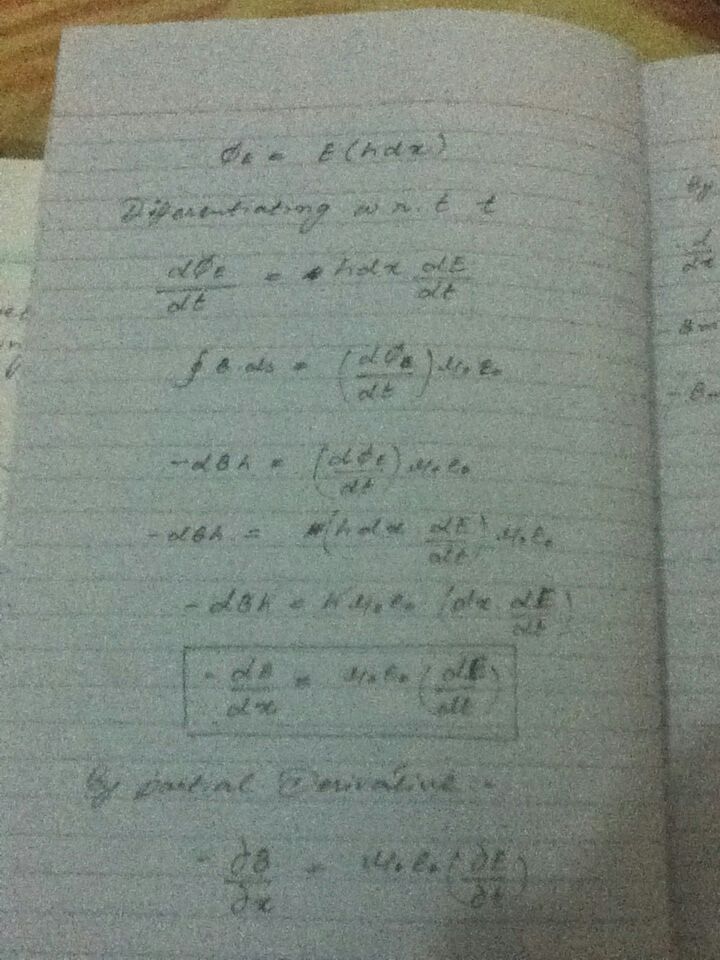 ϕ_E = E(hdx)
Differentiating w.r.t t
dϕ_E/dt = hdx dE/dt
∮B.ds = (dϕ_E/dt)μ₀ε₀
-dBh = (dϕ_E/dt)μ₀ε₀
-dBh = (hdx dE/dt)μ₀ε₀
-dBh = hμ₀ε₀(dx dE/dt)
-dB/dx = μ₀ε₀(dE/dt)
By partial Derivative -
-∂B/∂x = μ₀ε₀(∂E/∂t)
By
d/dx